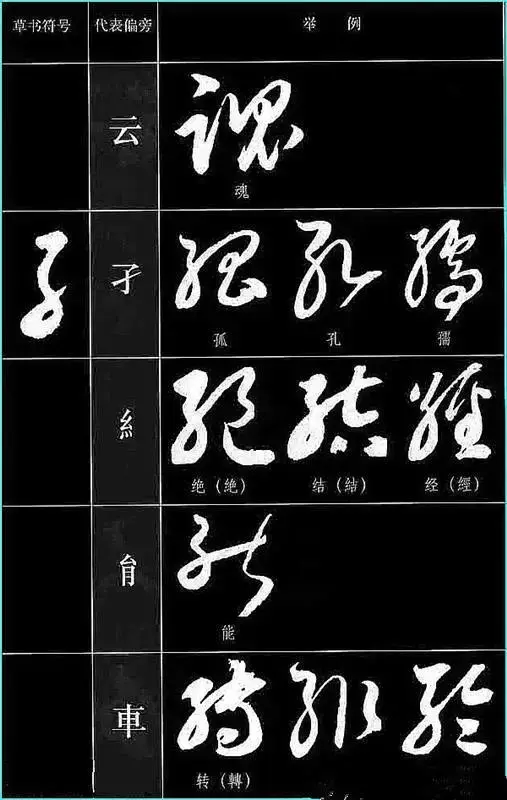 草书符号 代表偏旁 举 例
云
魂
子 孑
孤 孔 孺
糹
绝（绝） 结（結） 经（經）
䏍
能
車
转（轉）